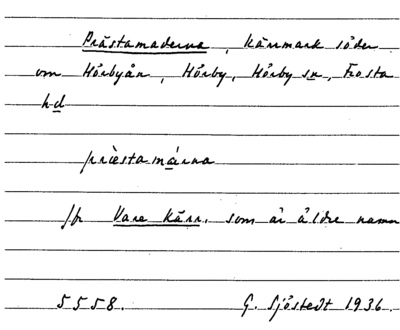 Prästamaderna, Kärrmark söder
om Hörbyån, Hörby, Hörby sn, Frosta
hd
prèstamárna
jfr Vare Kärr. som är äldre namn
5558. G. Sjöstedt 1936.